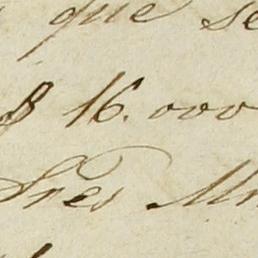 que se
$ 16.000
Tres M